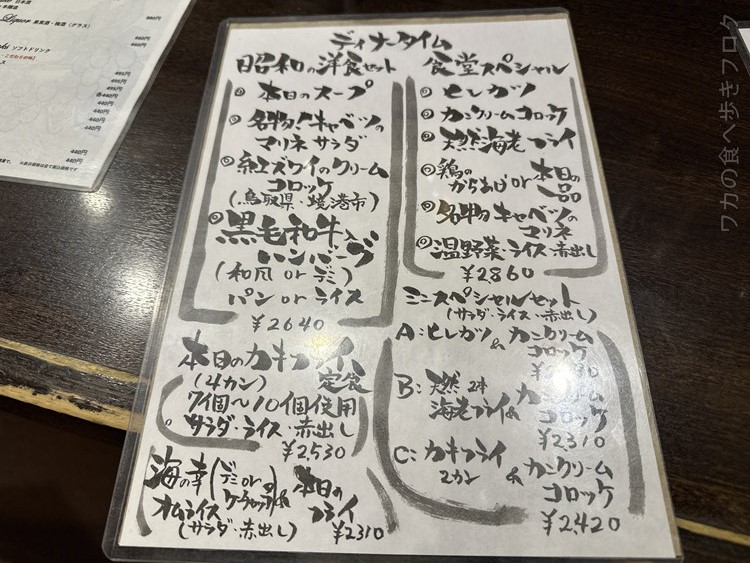 Liquor 果実酒・梅酒(グラス)
ソフトドリンク
880円
440円
440円
495円
495円
495円
各440円
440円
440円
440円
440円
440円
ディナータイム
昭和の洋食セット
本日のスープ
名物!キャベツの
マリネサラダ
紅ズワイのクリーム
コロッケ
(鳥取県・境港市)
黒毛和牛入
ハンバーグ
(和風orデミ)
パンorライス
¥2640
本日のカキフライ
(4カン) 定食
7個〜10個使用
サラダ・ライス・赤出し
¥2,530
海の幸(デミor
オムライス ケチャップ)&
本日の
フライ
(サラダ・赤出し) ¥2310
食堂スペシャル
ヒレカツ
カニクリームコロッケ
天然海老フライ
鶏の
からあげor本日の
一品
名物キャベツの
マリネ
温野菜・ライス・赤出し
¥2860
ミニスペシャルセット
(サラダ・ライス・赤出し)
A:ヒレカツ & カニクリーム
コロッケ
B:天然2本
海老フライ& カニクリーム
コロッケ
¥2310
C:カキフライ
2カン & カニクリーム
コロッケ
¥2,420
ワカの食べ歩きブログ